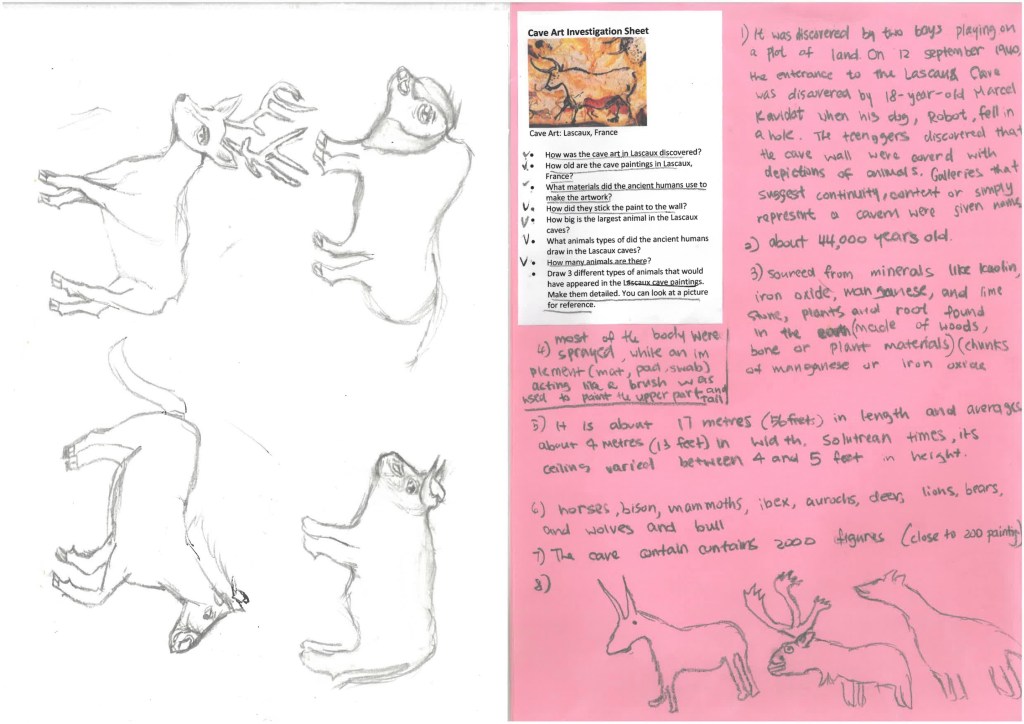 Cave Art Investigation Sheet
Cave Art: Lascaux, France
How was the cave art in Lascaux discovered?
How old are the cave paintings in Lascaux,
France?
What materials did the ancient humans use to
make the artwork?
How did they stick the paint to the wall?
How big is the largest animal in the Lascaux
caves?
What animals types of did the ancient humans
draw in the Lascaux caves?
How many animals are there?
Draw 3 different types of animals that would
have appeared in the Lascaux cave paintings.
Make them detailed. You can look at a picture
for reference.
1) It was discovered by two boys playing on
a plot of land. On 12 september 1940,
the enterance to the Lascaux Cave
was discovered by 18-year-old Marcel
Ravidat when his dog, Robot, fell in
a hole. The teenggers discovered that
the cave wall were coverd with
depictions of animals. Galleries that
suggest continuity, context or simply
represent a cavern were given names
2) about 44,000 years old.
3) sourced from minerals like kaolin,
iron oxide, manganese, and lime
stone, plants and root found
in the earth (made of woods,
bone or plant materials) (chunks
of manganese or iron oxide
4) most of the body were
sprayed, while an im
plement (mat, pad, swab)
acting like a brush was
used to paint the upper part and
tail
5) It is about 17 metres (56 feet) in length and averages
about 4 metres (13 feet) in width. Solutrean times, its
ceiling varied between 4 and 5 feet in height.
6) horses, bison, mammoths, ibex, aurochs, deer, lions, bears,
and wolves and bull
7) The cave contain contains 2000 figures (close to 200 painting)
8)